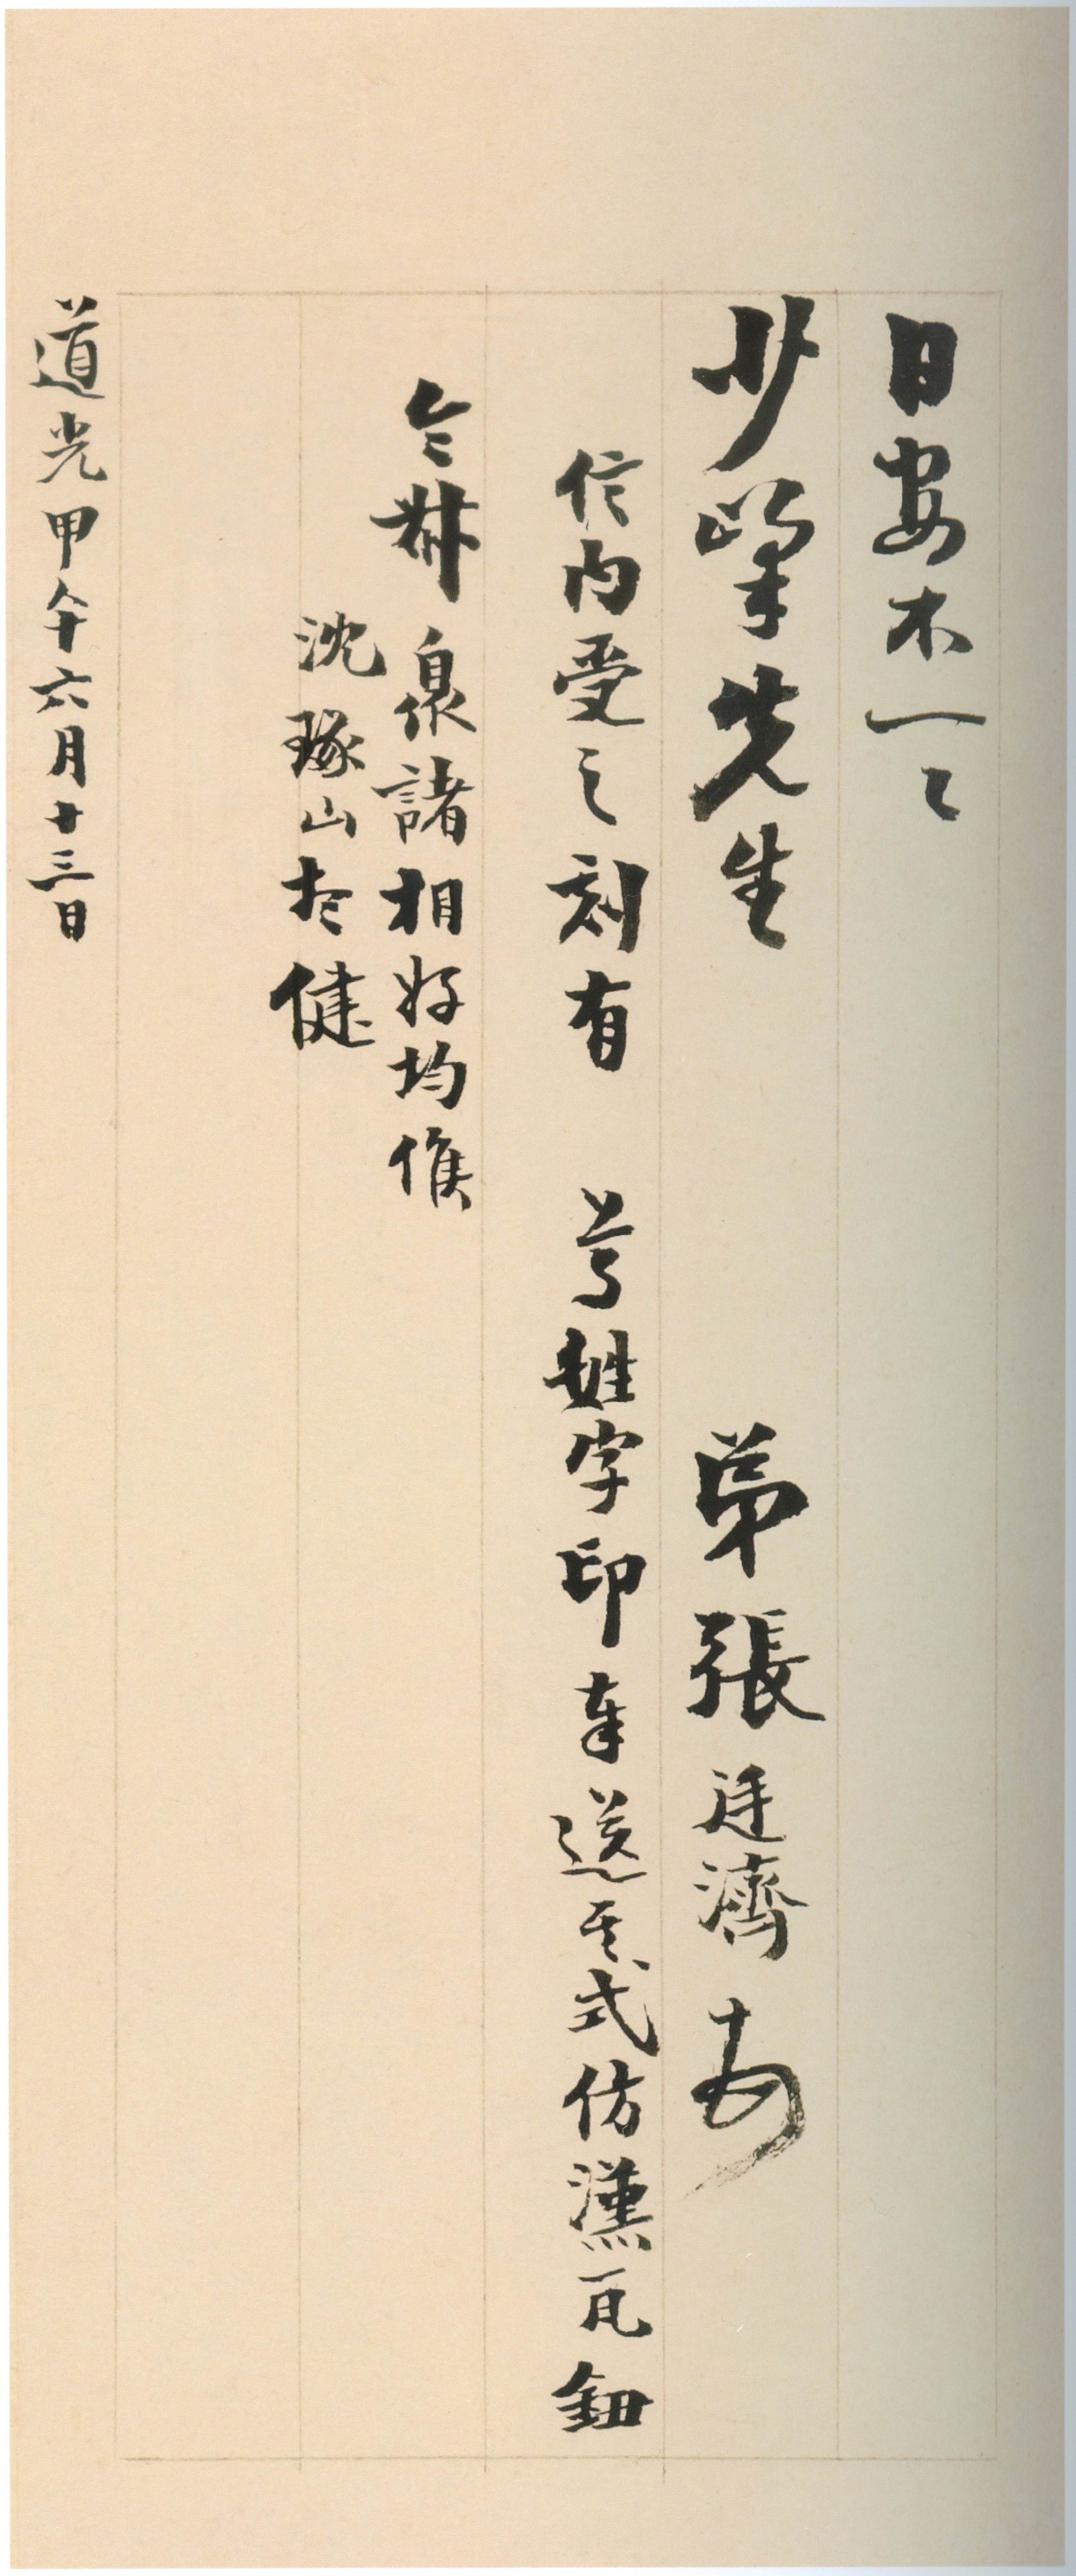 日安不一々
少峯先生 弟張廷濟頓
信内受之刻有 尊姓字印奉送其式仿漢瓦鈕
令叔 泉諸相好均候
沈琢山於健
道光甲午六月十三日